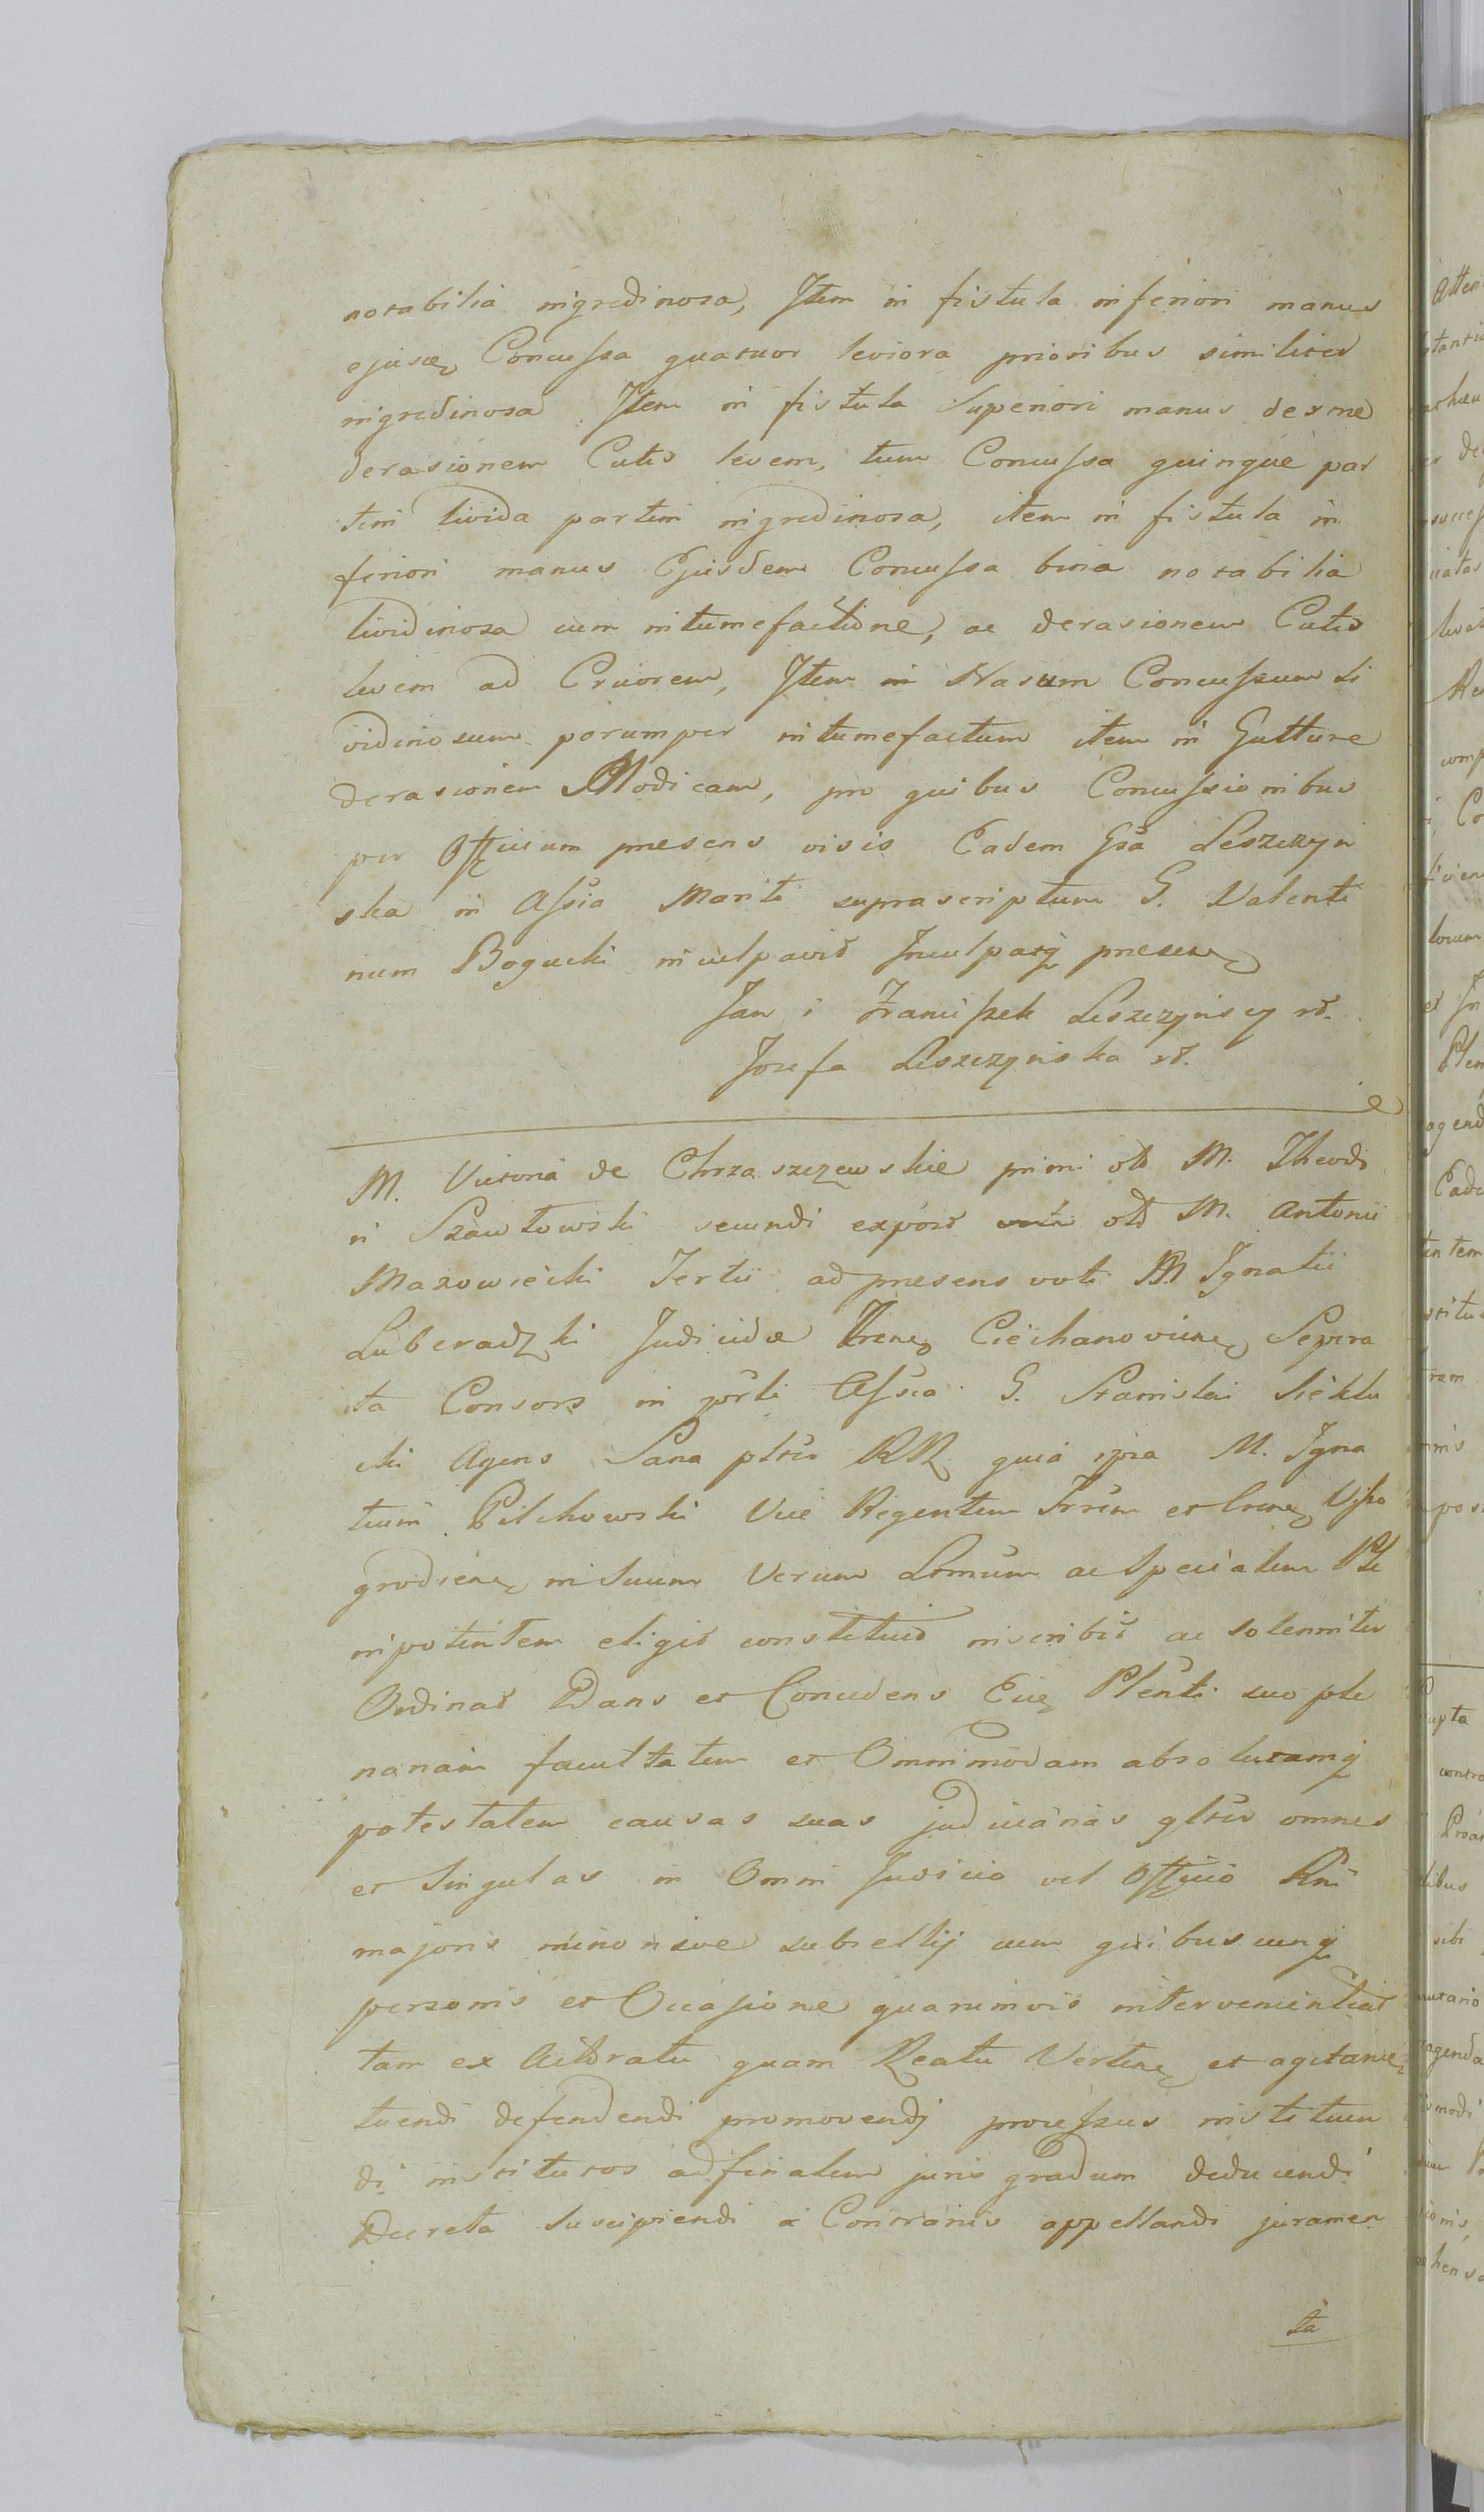 notabilia nigredinosa, Item in fistula inferiori manus
ejusd Concussa quatuor leviora prioribus similiter
nigredinosa Item in fistula Superiori manus dextrae
derasionem Cutis levem, tum Concussa quinque par
tim livida partim nigredinosa, item in fistula in
feriori manus Ejusdem Concussa bina notabilia
lividinosa cum intumefactione, ac derasionem Cutis
levem ad Cruorem, Item in Nasum Concussum li
vidinosum parumper intumefactum item in Gutture
derasionem Modicam, pro quibus Concussionibus
per Officium presens visis Eadem Gsa Leszczyn
ska in Assia Mariti suprascriptum G. Valenti
num Bogucki inculpavit Inculpatq presen
Jan i Franciszek Leszczynscy
Jozefa Leszczynska
M. Victoria de Chrzaszczewskie primi olt M. Theodo
ri Szawłowski secundi expost olt M. Antonii
Mazowiecki Tertii ad presens voti M Ignatii
Luberadzki Judicidae Trenę Ciechanoviene Separa
ta Consors in Assia G. Stanislai Siekłu
cki Agens Sana pltr RR quia ipsa M. Igna
tium Pilchowski Vice Regentem Trrem et Crene Visso
grodiene in suum Verum Ltmum ac Specialem Ple
nipotentem eligit constituit inscribit ac solenniter
Ordinat Dans et Concedens Eid Plenti suo ple
nariam facultatem et Omnimodam absolutamq
potestatem causas suas judiciarias gltr omnes
et Singulas in Omni Judicio vel Officio Rni
majoris minorisve subsellij cum quibuscunq
personis et Occasione quarumvis intervenientiat
tam ex Actoratu quam Reatu Verten et agitan
tuendi defendendi promovendj processus instituen
di institutos ad finalem juris gradum deducendi
Decreta Suscipiendi a Contrariis appellandi juramen
ta